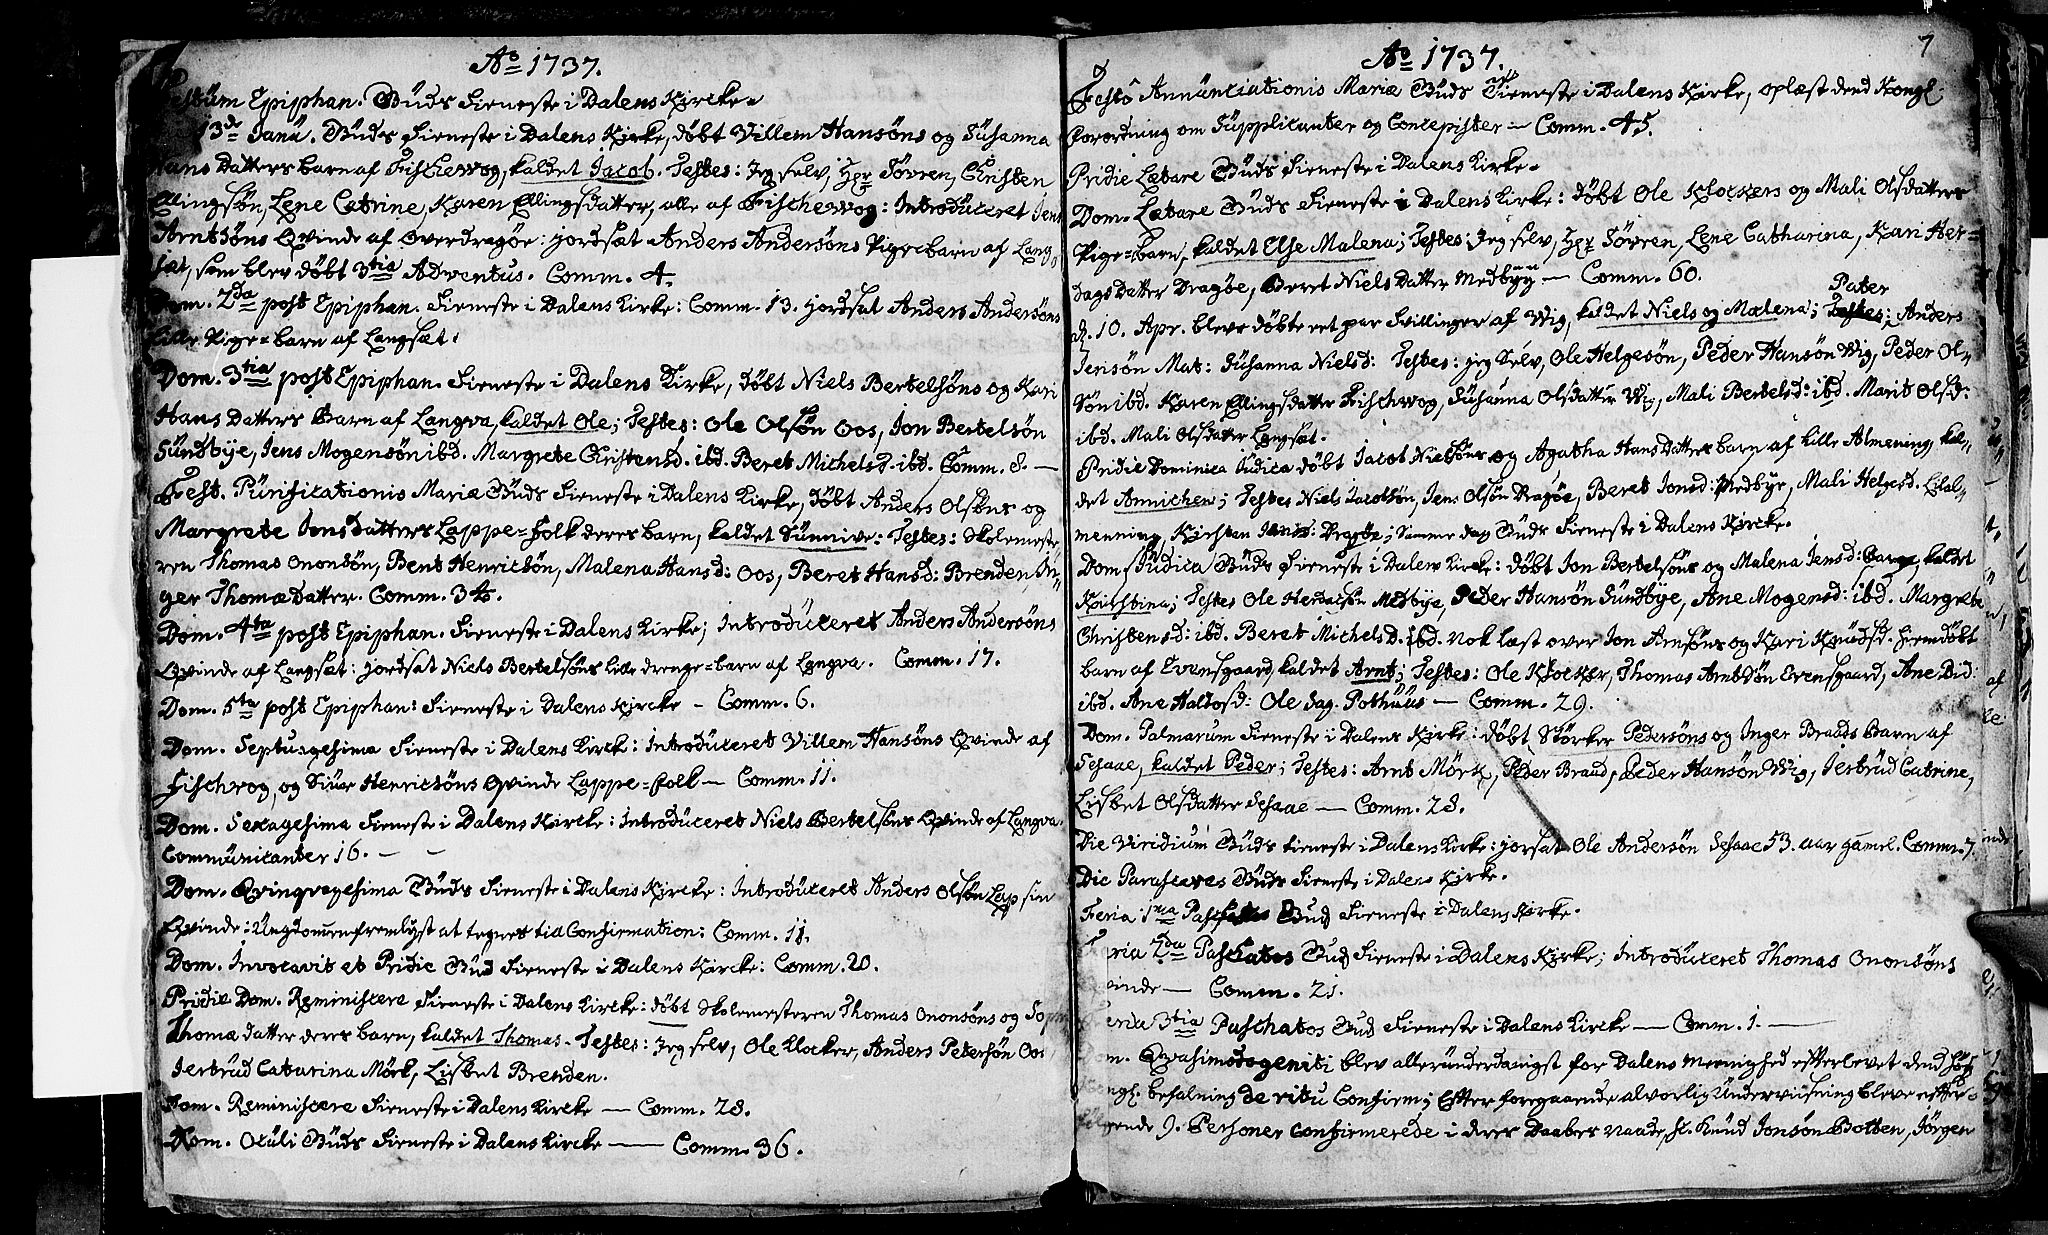 Ao 1737.
Festum Epiphan. Guds Tieneste i Dalens Kircke.
13de Janu. Guds Tieneste i Dalens Kirke, døbt Villem Hansøns og Susanna
Hans Datters barn af Fischevog, kaldet Jacob. Testes: Jeg selv, Hr Søvren, Christen
Ellingsøn, Lene Catrine, Karen Ellingsdatter, alle af Fischevog: Introduceret Jens
Arntsøns Qvinde af Overdragøe: jordsat Anders Andersøns Pigebarn af Lang-
sæt, som blev døbt 3tia Adventus. Comm. 4.
Dom. 2da post Epiphan. Tieneste i Dalens Kirke: Comm. 13. jordsat Anders Andersøns
lille Pige-barn af Langsæt.
Dom. 3tia post Epiphan. Tieneste i Dalens Kirke, døbt Niels Bertelsøns og Kari
Hans Datters Barn af Langva, kaldet Ole; Testes: Ole Olsøn Oos, Jon Bertelsøn
Sundbye, Jens Mogensøn ibd. Margrete Christensd. ibd. Beret Michelsd. ibd. Comm. 8. —
Fest. Purificationis Mariæ Guds Tieneste i Dalens Kirke, døbt Anders Olsøns og
Margrete Jonsdatters Lappe-Folk deres barn, kaldet Sunnive: Testes: Skolemeste-
ren Thomas Ononsøn, Bent Henricsøn, Malena Hansd: Oos, Beret Hansd: Brenden, In-
ger Thomædatter. Comm. 34.
Dom. 4ta post Epiphan. Tieneste i Dalens Kirke; Introduceret Anders Andersøns
Qvinde af Langsæt: jordsat Niels Bertelsøns lille drenge-barn af Langva. Comm. 17.
Dom. 5ta post Epiphan: Tieneste i Dalens Kircke — Comm. 6.
Dom. Septuagesima Tieneste i Dalens Kirck: Introduceret Villem Hansøns Qvinde af
Fischvog, og Siur Henricsøns Qvinde Lappe-folk — Comm. 11.
Dom. Sexagesima Tieneste i Dalens Kircke: Introduceret Niels Bertelsøns Qvinde af Langva.
Communicanter 16. — —
Dom. Qvinqvagesima Guds Tieneste i Dalens Kircke: Introduceret Anders Olsøn Lap sin
Qvinde: Ungdommen fremlyst at tegnes til Confirmation: Comm. 11.
Dom. Invocavit et Pridie Gud Tieneste i Dalens Kircke: Comm. 20.
Pridie Dom. Reminiscere Tieneste i Dalens Kircke: døbt Skolemesteren Thomas Ononsøns og
Thomædatter deres barn, kaldet Thomas. Testes: Jeg selv, Ole Klocker, Anders Petersøn Oos,
Jertrud Catarina Mörk, Lisbet Brenden.
Dom. Reminiscere Tieneste i Dalens Kircke — Comm. 28.
Dom. Oculi Guds Tieneste i Dalens Kircke — Comm. 36.
7
Ao 1737.
Festo Annunciationis Mariæ Guds Tieneste i Dalens Kirke, oplæst dend Kongl
Forordning om Supplicanter og Concipister — Comm. 45.
Pridie Lætare Guds Tieneste i Dalens Kirke.
Dom. Lætare Guds Tieneste i Dalens Kirke: Døbt Ole Klockers og Mali Olsdatters
Pige-barn, kaldet Else Malena; Testes: Jeg selv, Hr Søvren, Lene Catharina, Kari Her-
dags Datter Dragøe, Beret Niels Datter Medbÿe — Comm. 60.
Pater
d. 10. Apr. bleve døbte et par Tvillinger af Wig, kaldet Niels og Malena; Testes: Anders
Jensøn Mat: Susanna Nielsd: Testes: jeg selv, Ole Helgesøn, Peder Hansøn Wig, Peder Ol-
søn ibd. Karen Ellingsdatter Fischvog, Susanna Olsdatter Wig, Mali Bertelsd: ibd. Marit Olsd:
ibd. Mali Olsdatter Langsæt.
Pridie Dominica Judica døbt Jacob Nielsøns og Agatha Hans Datters barn af Lille Almening, kal-
det Annichen; Testes Niels Jacobsøn, Jens Olsøn Dragøe, Beret Jonsd: Medbye, Mali Helgesd. Lilal-
menning, Kirsten Jensd: Dragøe; samme dag Guds Tieneste i Dalens Kircke.
Dom. Judica Guds Tieneste i Dalens Kirke: Døbt Jon Bertelsøns og Malena Jensd: Barn, kaldet
Kirstina; Testes Ole Medbye, Peder Hansøn Sundbye, Ane Mogensd: ibd. Margrete
Christensd: ibd. Beret Michelsd. ibd. Nok læst over Jon Arnsøns og Kari Knudsd. hiemdøbt
barn af Evensgaard, kaldet Arnt; Testes: Ole Klocker, Thomas Arntsøn Evensgaard, Ane Did:
ibd. Ane Haldosd: Ole Dag. Pothuus — Comm. 29.
Dom. Palmarum Tieneste i Dalens Kirke: døbt Størker Pedersøns og Inger Brauds Barn af
Sesaae, kaldet Peder; Testes: Arnt Mörk, Peder Braud, Peder Hansøn Wig, Jertrud Catrine,
Lisbet Olsdatter Sesaae — Comm. 28.
Die Viridium Guds tieneste i Dalens Kirke: jorsat Ole Andersøn Sesaae 53. aar gamel. Comm. 7.
Die Parasceves Guds Tieneste i Dalens Kirke.
Feria 1ma Paschatos Gud Tieneste i Dalens Kirke.
Feria 2da Paschatos Gud Tieneste i Dalens Kirke; Introduceret Thomas Ononsøns
Qvinde — Comm. 21.
Feria 3tia Paschatos Gud Tieneste i Dalens Kircke — Comm. 1. —
Dom. Qvasimodogeniti blev allerunderdanigst for Dalens Menighed efterlevet dend
Kongl. befalning de ritu Confirm; Efter foregaaende alvorlig Underviisning bleve efter-
følgende 9. Personer confirmerede i deres Daabes Naade, sc. Knud Jonsøn Botten, Jörgen